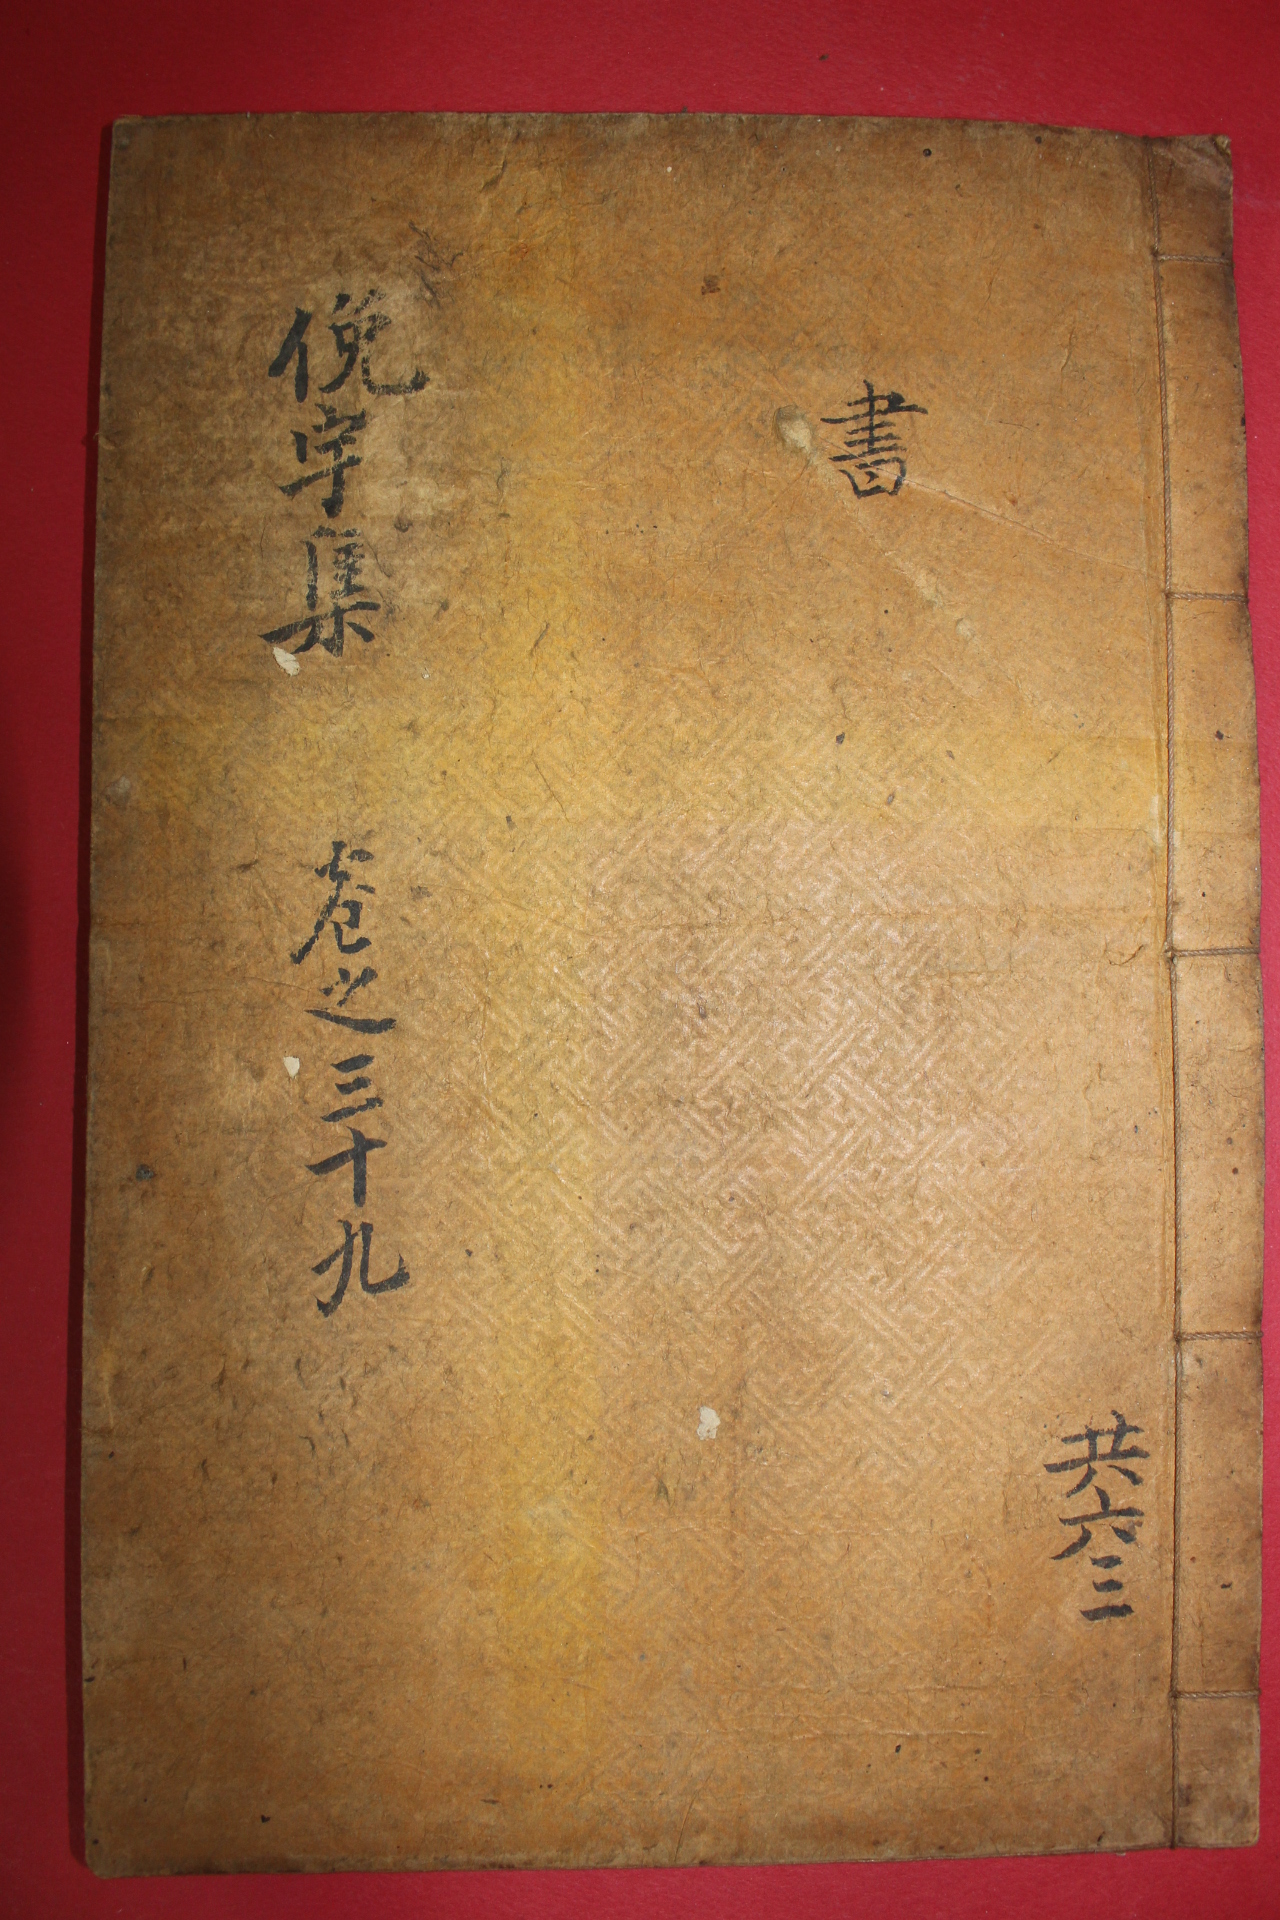 共六三
書
俛宇集 卷之三十九